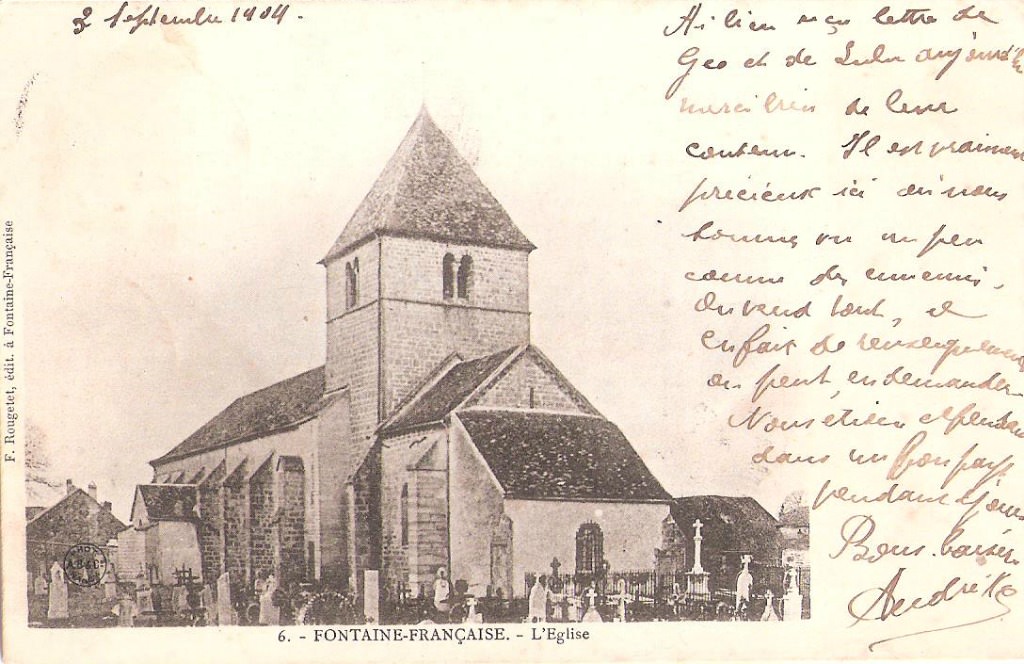 2 Septembre 1904.
Ai bien reçu lettre de
Geo et de Lulu aujourd'h
merci bien de leur
contenu. Il est vraiment
précieux ici où nous
sommes vu un peu
comme des ennemis.
On vend tout, et
en fait de renseignements
on peut en demander.
Nous étions cependant
dans un bon pays
pendant jours
Bons baisers
André
F. Rougetet, édit. à Fontaine-Française
6. - FONTAINE-FRANÇAISE. - L'Eglise